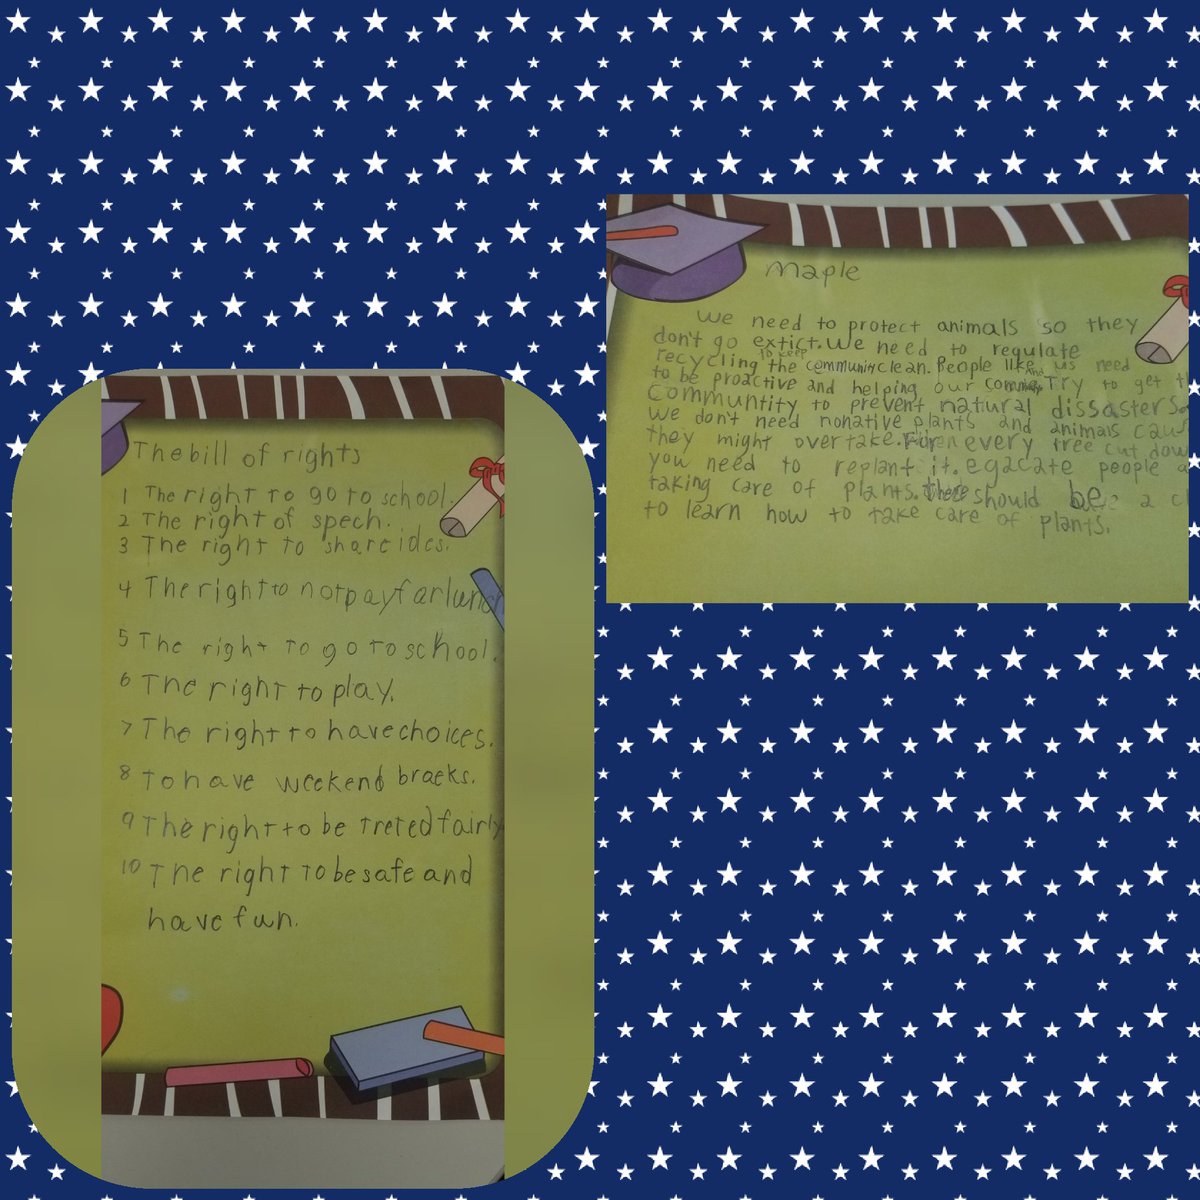 The bill of rights
1 The right to go to school.
2 The right of spech.
3 The right to share ides.
4 The right to not pay far lunch
5 The right to go to school.
6 The right to play.
7 The right to have choices.
8 To have weekend braeks.
9 The right to be treted fairly
10 The right to be safe and
have fun.
Maple
We need to protect animals so they
don't go extict. We need to regulate
recycling to keep the communiti clean. People like us need
to be proactive and helping our Try to get
communtity to prevent natural dissasters
we don't need nonative plants and animals
they might overtake. For every tree cut down
you need to replant it. egacate people
taking care of plants. there should be a
to learn how to take care of plants.